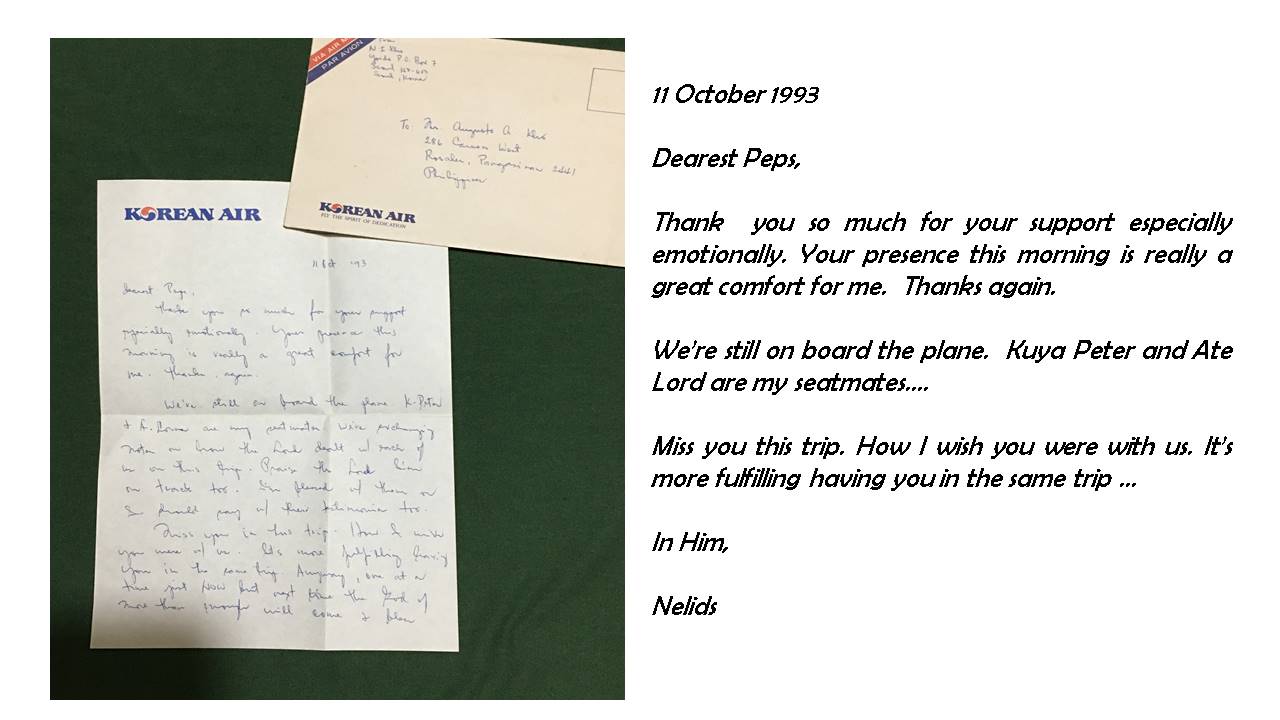 VIA AIR M
PAR AVION
From
N I
P.O. Box 7
Seoul
Seoul, Korea
To: Mr. Augusto A
286 Carmen West
Rosales, Pangasinan 2441
Philippines
KOREAN AIR
FLY THE SPIRIT OF DEDICATION
KOREAN AIR
11 Oct '93
Dearest Peps,
Thank you so much for your support
especially emotionally. Your presence this
morning is really a great comfort for
me. Thanks again.
We're still on board the plane. K. Peter
& A. are my seatmates We're exchanging
notes on how the Lord dealt w/ each of
us on this trip. Praise the Lord
on track too. I'm blessed w/ them or
I should say w/ their testimonies too.
Miss you in this trip. How I wish
you were w/ us. It's more fulfilling having
you in the same trip. Anyway, one at a
time just NOW but next time the God of
more than enough will come &
11 October 1993
Dearest Peps,
Thank you so much for your support especially
emotionally. Your presence this morning is really a
great comfort for me. Thanks again.
We're still on board the plane. Kuya Peter and Ate
Lord are my seatmates....
Miss you this trip. How I wish you were with us. It's
more fulfilling having you in the same trip ...
In Him,
Nelids